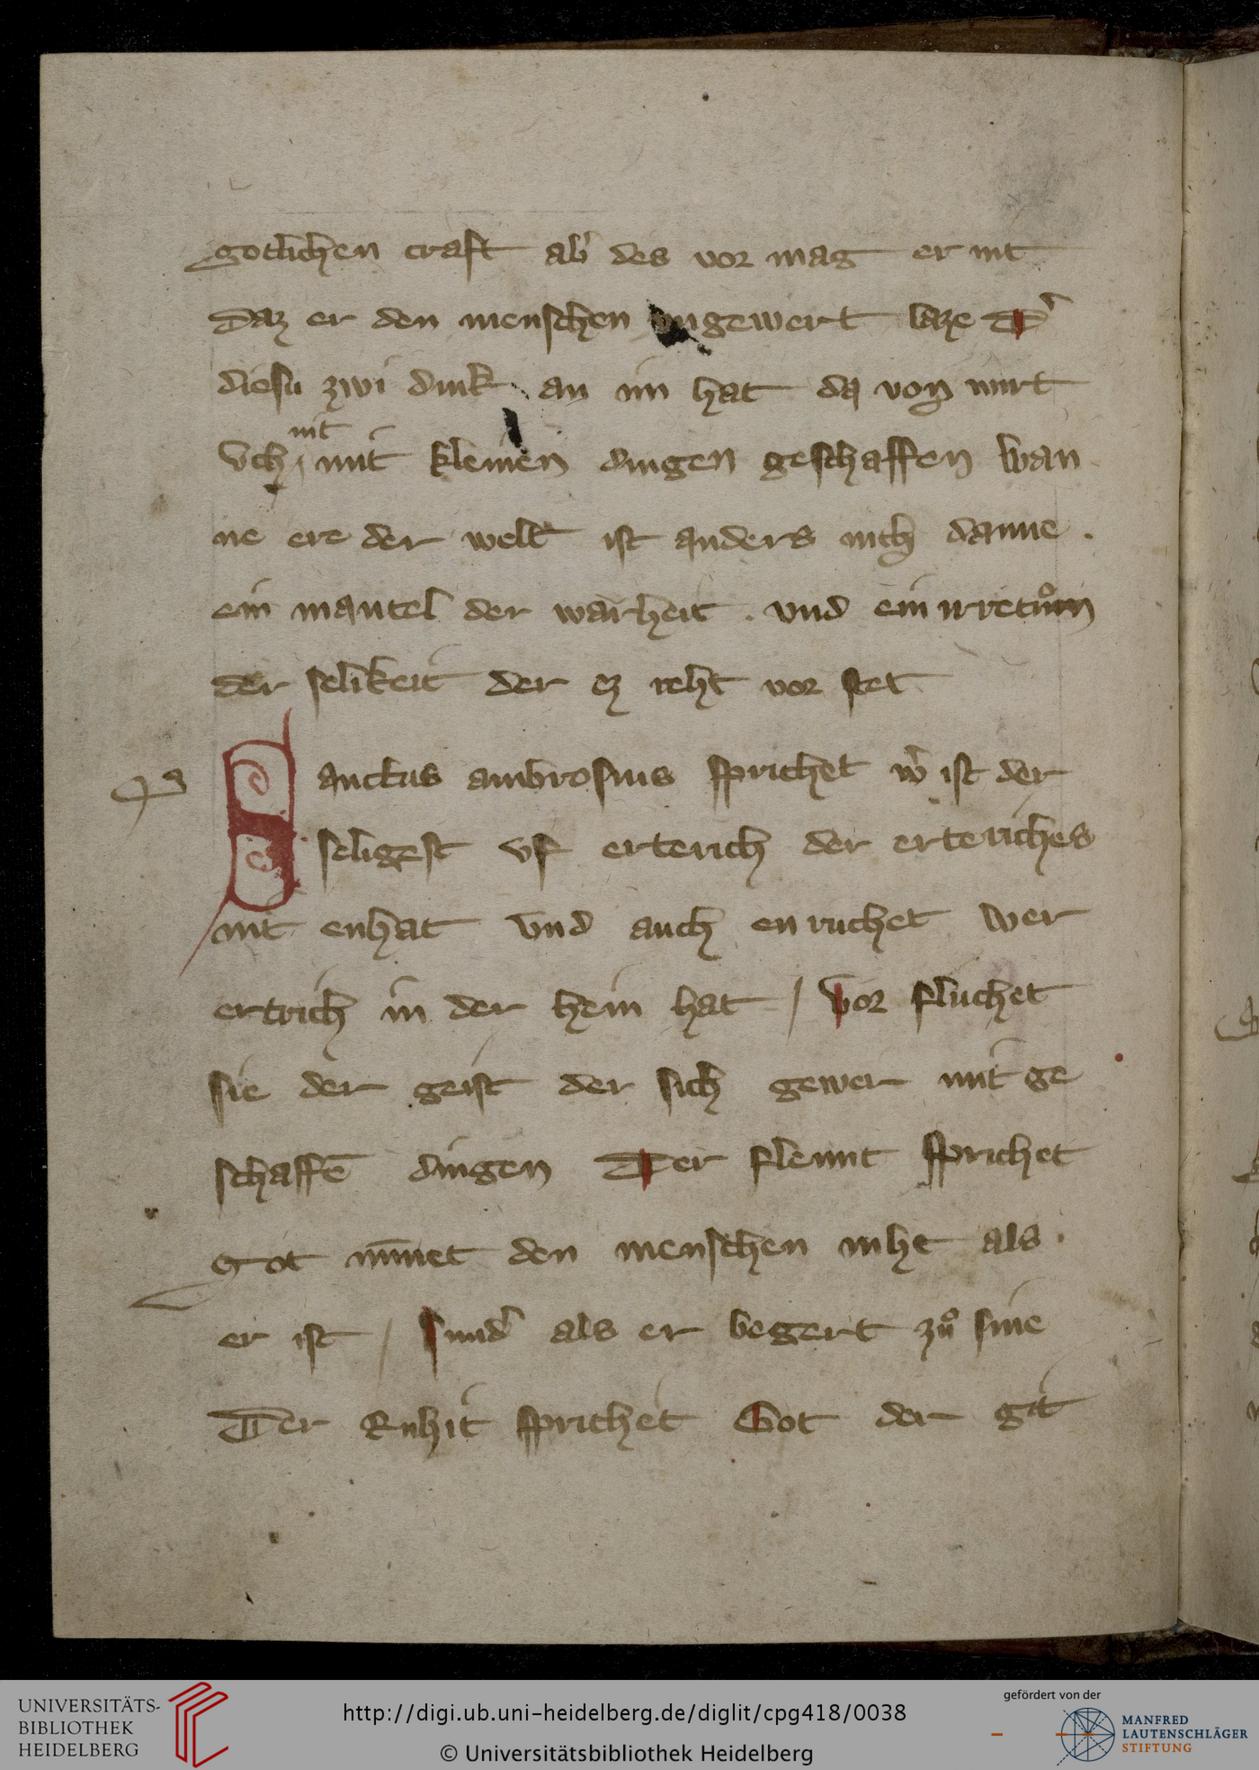 gotlichen craft ab' des vor mag er nit
Daz er den menschen ungewert laze D'
diesu zwi dink an im hat da von wirt
nit
Uch mit kleinen dingen geschaffen wan
ne ere der welt ist anders nich danne .
ein mantel der warheit . und ein irretům
der selikeit der ez reht vor stet
Sanctus ambrosius sprichet w' ist der
seligest uf erterich der erteriches
nit enhat und auch enruchet wer
ertrich in der hein hat / vor fluchet
sie der geist der sich gewer mit ge
schaffē dingen Der flennt sprichet
Got nīmet den menschen niht als .
er ist / sund' als er begert zů sine
Der Ruhit sprichet Got der git
UNIVERSITÄTS-
BIBLIOTHEK
HEIDELBERG
http://digi.ub.uni-heidelberg.de/diglit/cpg418/0038
© Universitätsbibliothek Heidelberg
gefördert von der
MANFRED
LAUTENSCHLÄGER
STIFTUNG